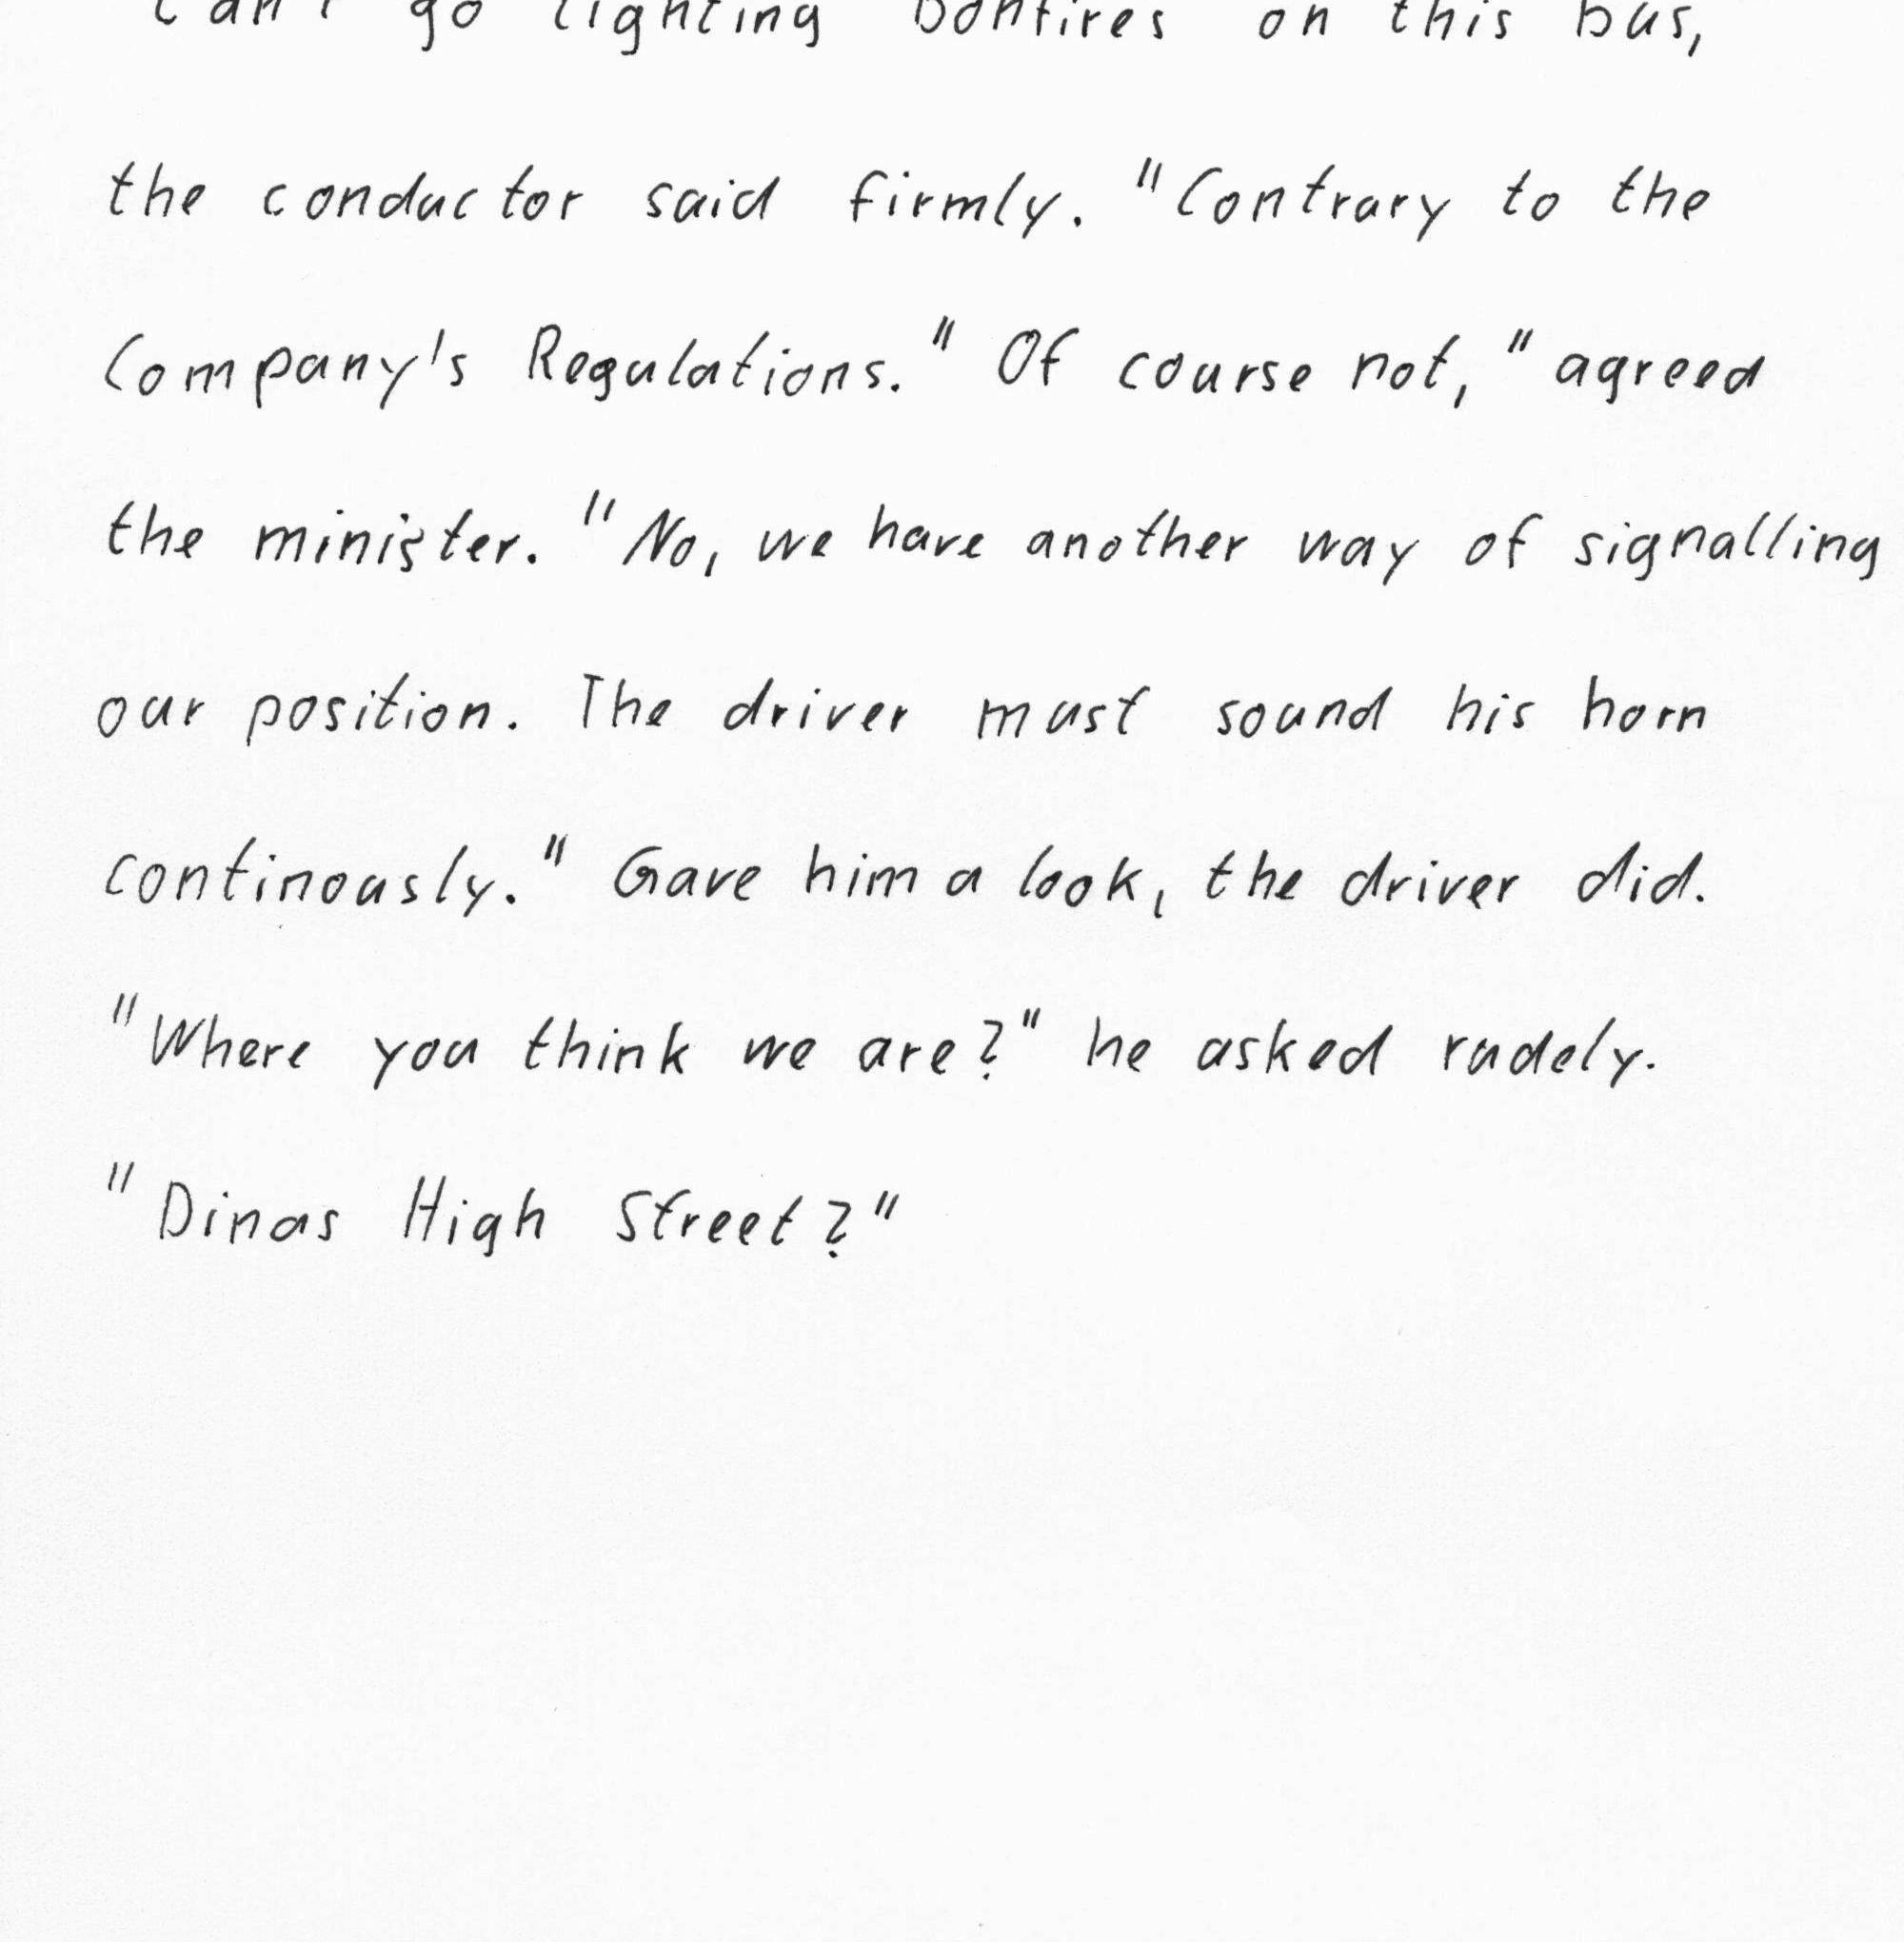 can't go lighting bonfires on this bus,
the conductor said firmly. "Contrary to the
Company's Regulations." Of course not," agreed
the minister. "No, we have another way of signalling
our position. The driver must sound his horn
continously." Gave him a look, the driver did.
"Where you think we are?" he asked rudely.
"Dinas High Street?"